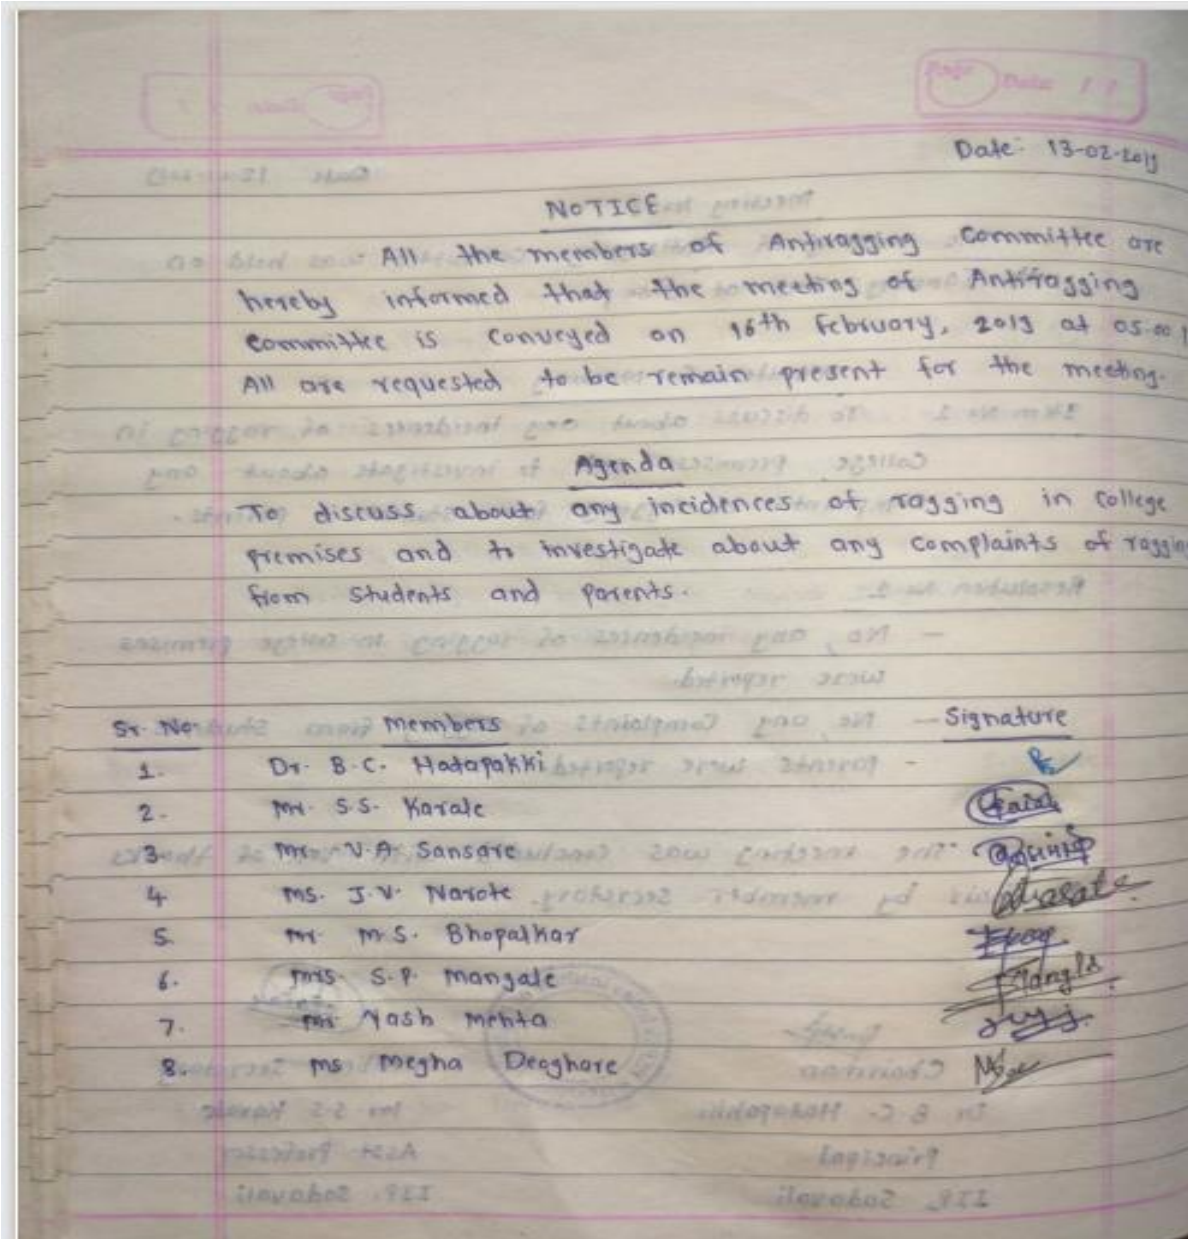 Page Date: / /
Date:- 13-02-2019
NOTICE
All the members of Antiragging Committee are
hereby informed that the meeting of Antiragging
committee is conveyed on 16th February, 2019 at 05.00
All are requested to be remain present for the meeting.
Agenda
To discuss about any incidences of ragging in college
premises and to investigate about any complaints of ragging
from students and parents.
Sr. No. Members Signature
1. Dr. B.C. Hatapakki
2. Mr. S.S. Karale
3. Mr. V.A. Sansare
4. Ms. J.V. Narote
5. Mr. M.S. Bhopalkar
6. Mrs. S.P. Mangale
7. Mr. Yash Mehta
8. Ms Megha Deoghare